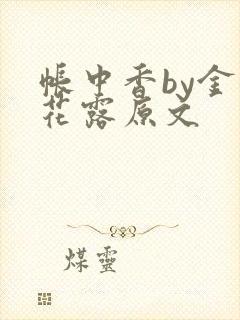 帐中香by金
花露原文
煤灵